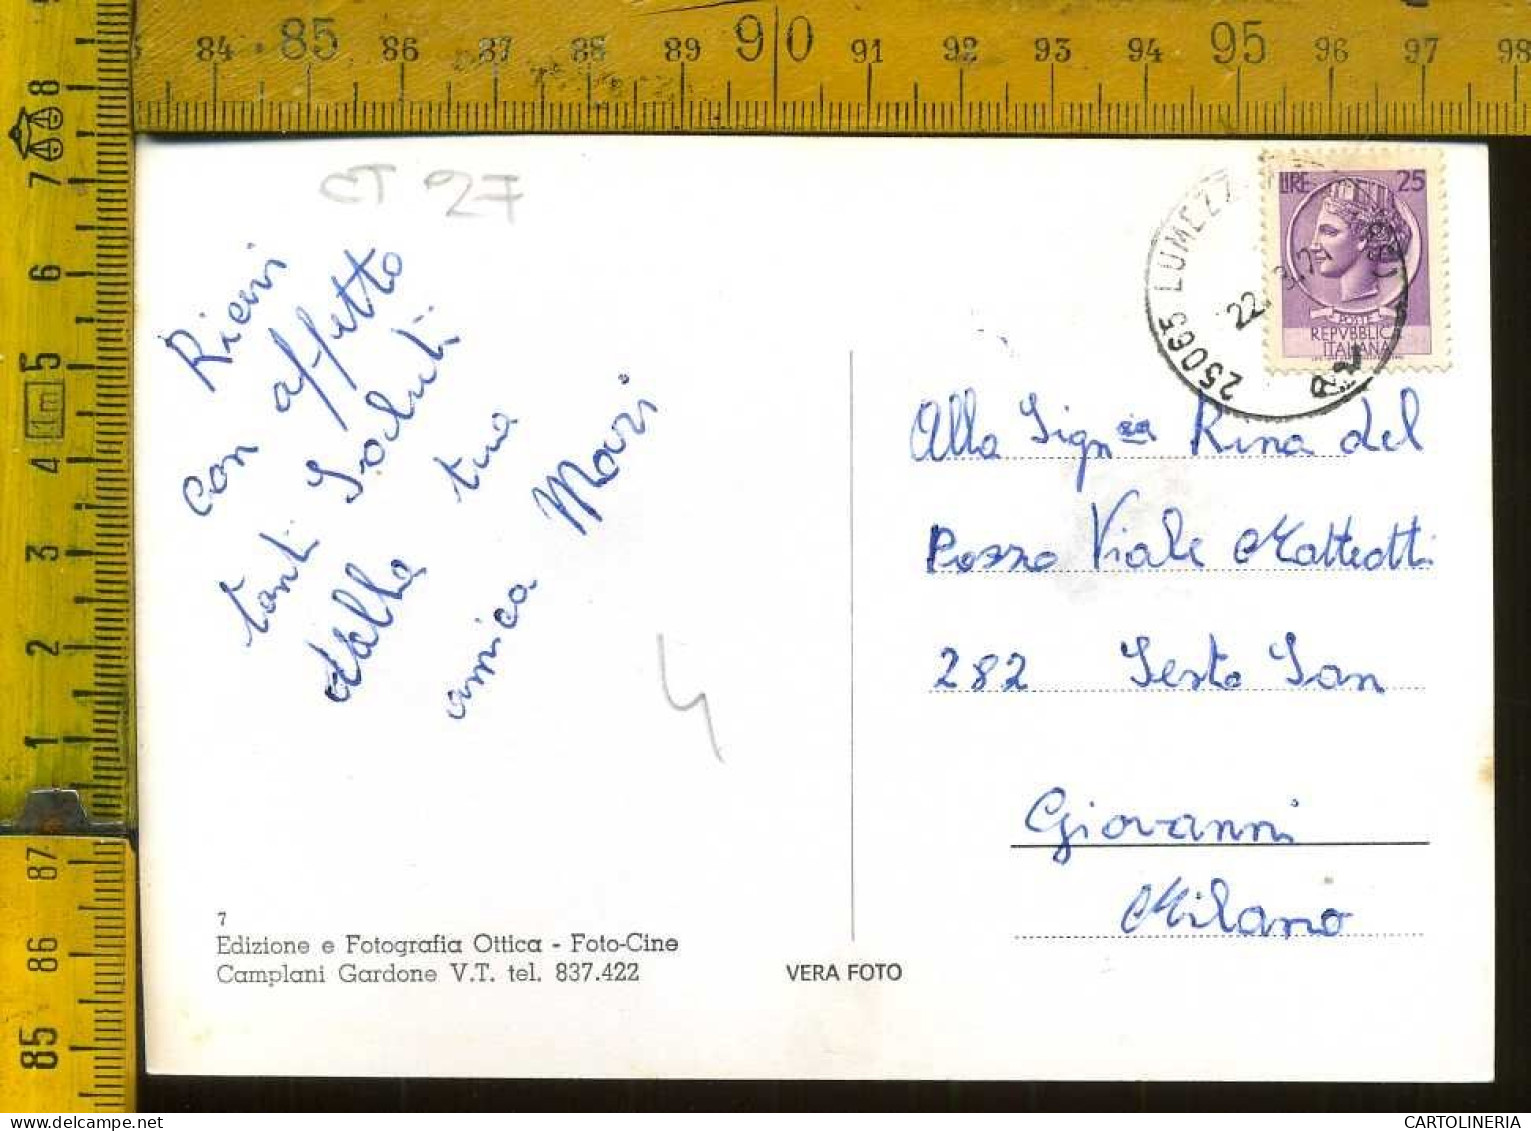 84 85 86 87 88 89 90 91 92 93 94 95 96 97 98
8
7
6
5
1m
4
3
2
1
87
86
85
CT 27
Ricevi
con affetto
tanti Saluti
dalla tua
amica Mari
4
LIRE 25
POSTE
REPVBBLICA
ITALIANA
25065 LUMEZZ
22. 3. 7
Alla Sign ra Rina del
Pozzo Viale Matteotti
282 Sesto San
Giovanni
Milano
7
Edizione e Fotografia Ottica - Foto-Cine
Camplani Gardone V.T. tel. 837.422
VERA FOTO
CARTOLINERIA